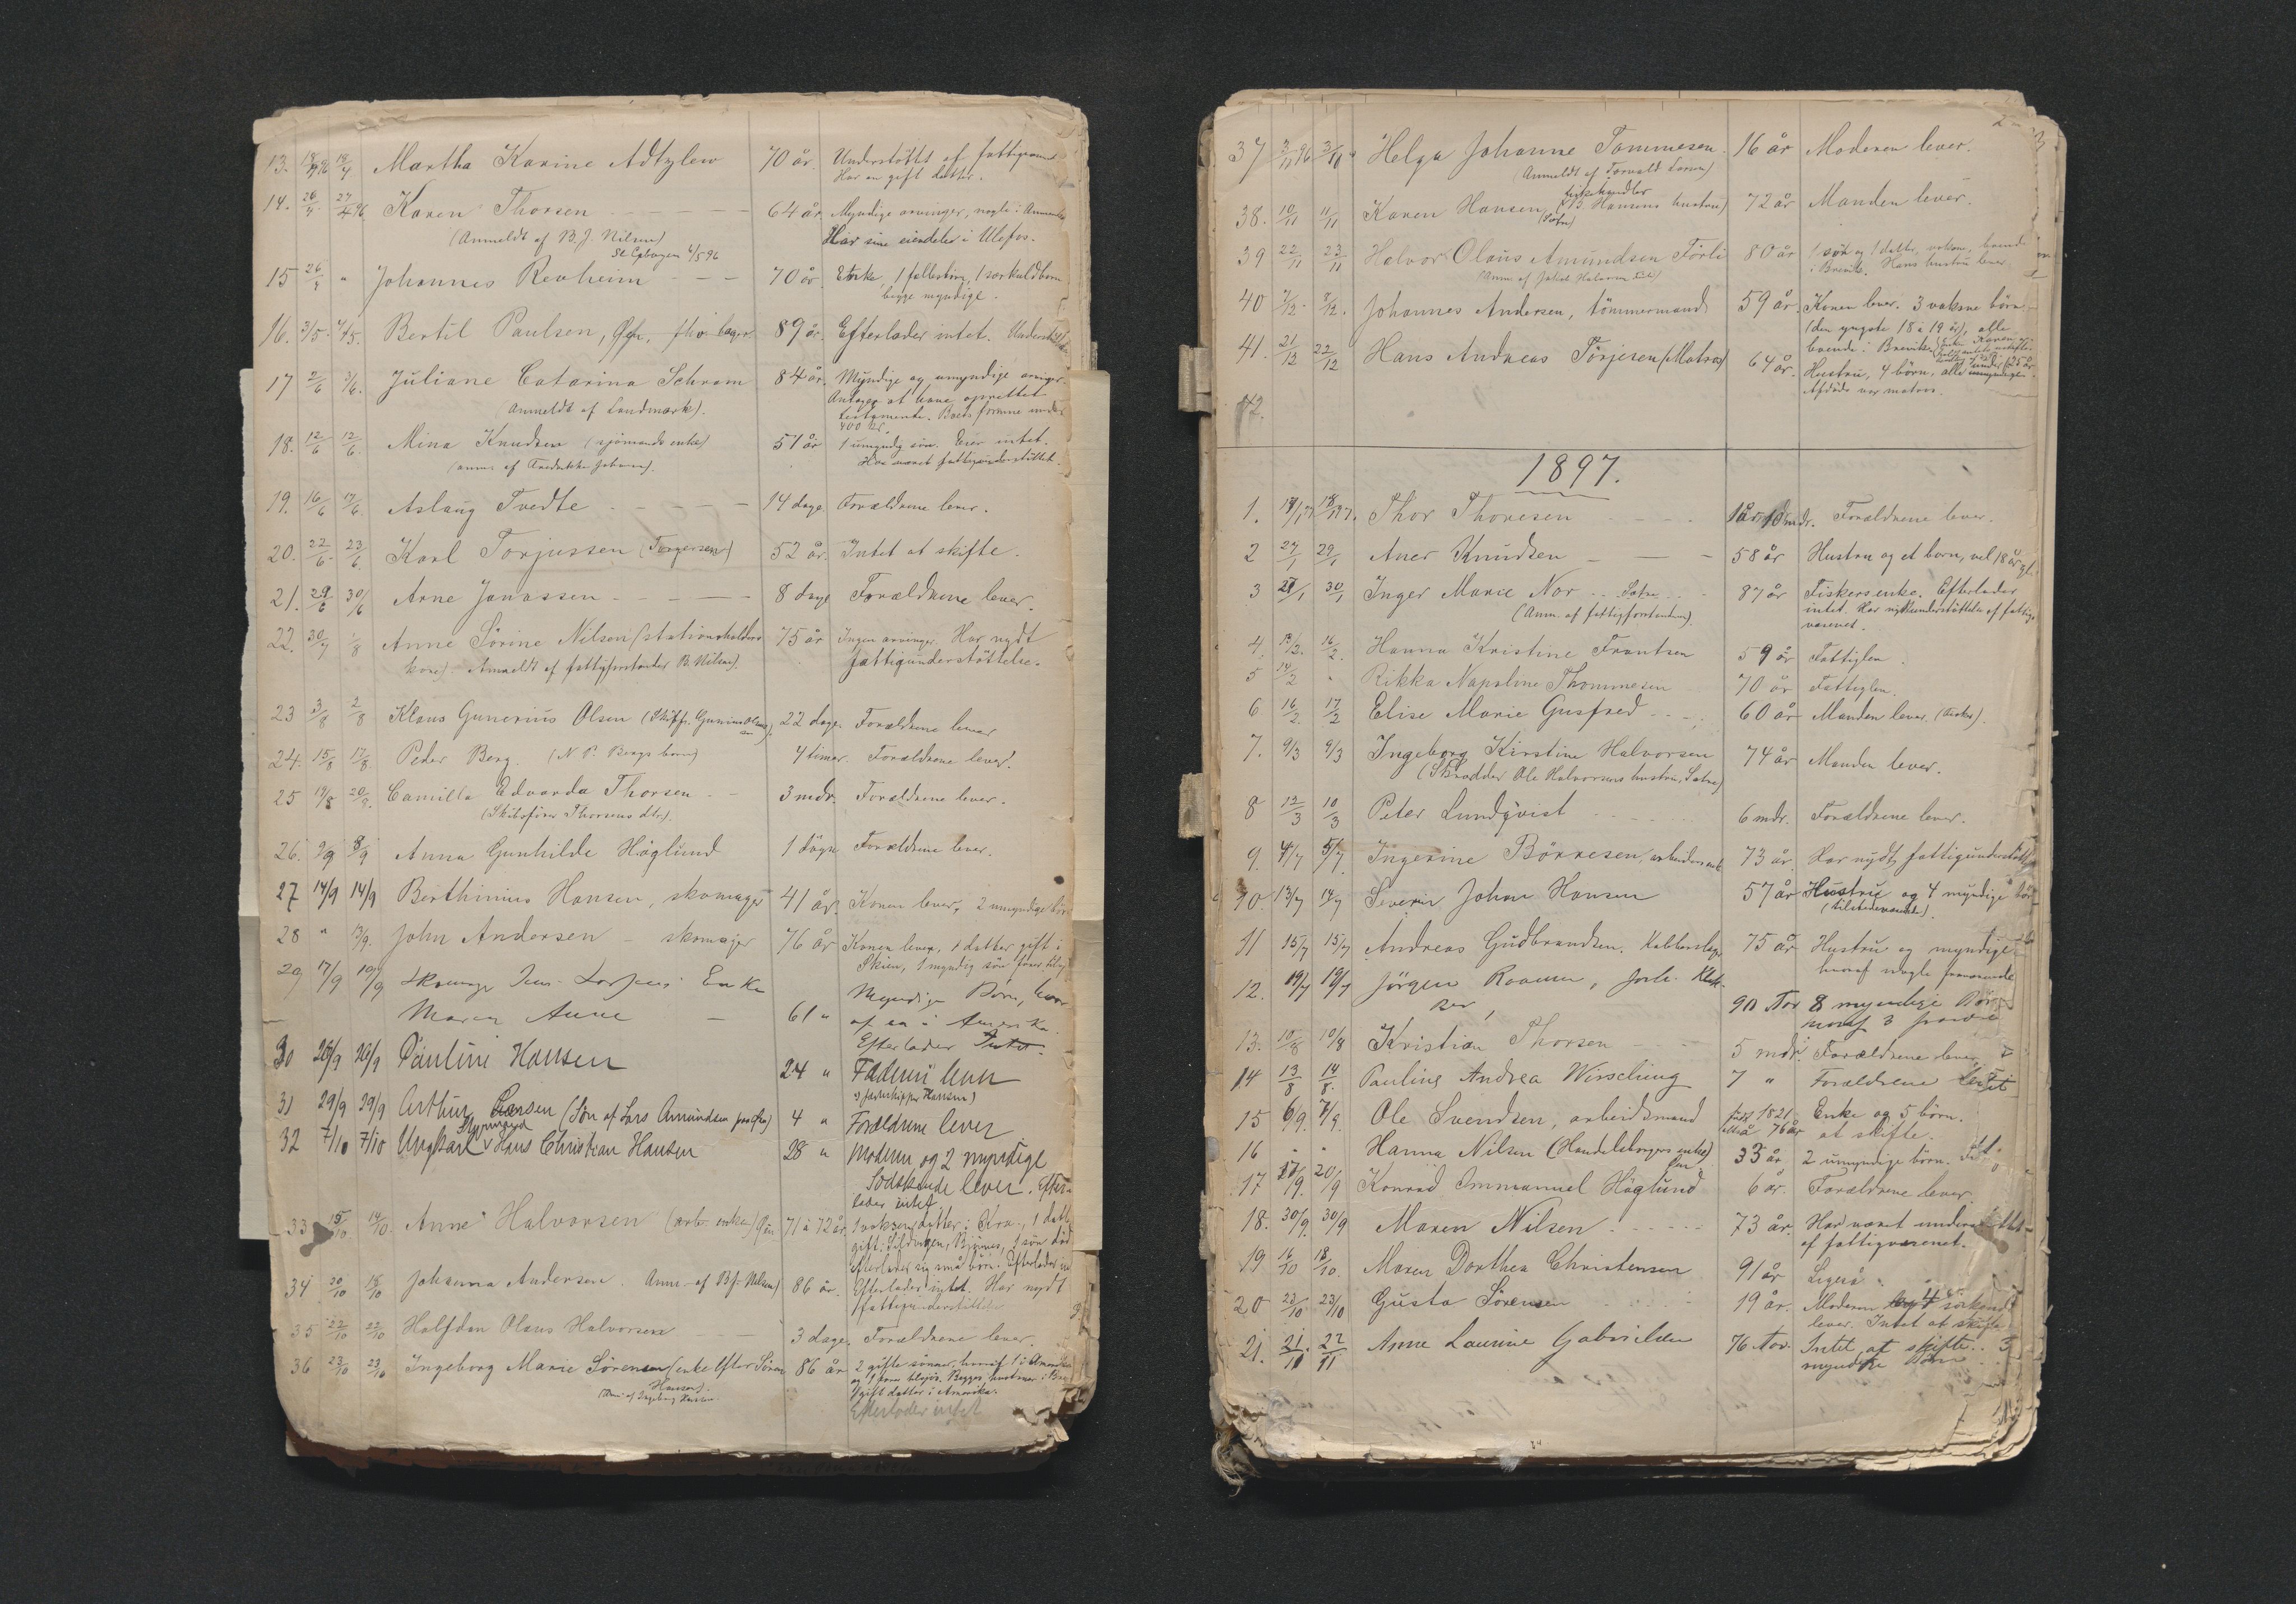 13. 18/4 96 18/4 Martha Karine Adtzlew 70 år. Understöttet af fattigvæsenet
Har en gift datter.
14. 26/4 27/4 96 Karen Thorsen 64 år Myndige arvinger, nogle i Amerika
(Anmeldt af B. J. Nilsen) Har sine eiendeler i Ulefos.
4/5 96
15 26/4 " Johannes Revheim 70 år. Enke, 1 fællesbarn, 1 særkuldbarn
begge myndige.
16. 3/5 4/5. Bertil Paulsen, Øen, 89 år. Efterlader intet.
17 2/6 3/6. Juliane Catarina Schram 84 år. Myndige og umyndige
(Anmeldt af Landmark). Antages at have oprettet
testamente. Boets formue under
400 kr.
18. 12/6 12/6. Mina Knudsen (sjömands enke) 51 år 1 umyndig sön. Eier intet.
(anm. af Fredrikke Johnsen). Har været fattigunderstöttet.
19. 16/6 17/6. Aslaug Tvedte 14 dage Forældrene lever.
20. 22/6. 23/6. Karl Torjussen (Torgersen) 52 år. Intet at skifte.
21. 29/6 30/6 Arne Janassen 8 dage Forældrene lever.
22. 30/7 1/8 Anne Sörine Nilsen (stationsholders 75 år Ingen arvinger. Har nydt
kone). Anmeldt af fattigforstander B. Nilsen). fattigunderstöttelse.
23 3/8 2/8 Klaus Gunerius Olsen (Skipp. Gunerius Olsens sön), 22 dage. Forældrene lever
24. 15/8 17/8. Peder Berg. (N. P. Bergs barn) 4 timer. Forældrene lever.
25 19/8 20/8. Camilla Edvarda Thorsen 3 mdr. Forældrene lever.
(Skibsförer Thorsens dtr).
26. 3/9 8/9 Anna Gunhilde Höglund 1 dögn Forældrene lever.
27 14/9 14/9 Berthinius Hansen, skomager 41 år. Konen lever, 2 umyndige börn
28 " 13/9. John Andersen - skomager 76 år Konen lever, 1 datter gift i
Skien, 1 myndig sön
29 17/9 19/9 Enke
Maren Anne 61 " Myndige Börn, hvor
af en i Amerika.
Efterlader Intet.
30 26/9 26/9 Pauline Hansen 24 " Faderen lever
Hansen)
31 29/9 29/9 Arthur Larsen (Søn af Lars Amundsen 4 " Forældrene lever
32 7/10 7/10 Ungkarl Styrmand Hans Christian Hansen 28 " Moderen og 2 myndige
Sødskende lever. Efter-
lader intet
33 15/10. 16/10. Anne Halvorsen (arb. enke) Øen 71 à 72 år. 1 voksen datter i Kra., 1 datter
gift i 1 sön död
efterlader sig små börn. Efterlader
34 20/10 Johanna Andersen. Anm. af B. J. Nilsen) 86 år. Efterlader intet. Har nydt
fattigunderstöttelse
35 22/10 22/10 Halfdan Olaus Halvorsen 3 dage. Forældrene lever.
36 23/10 23/10 Ingeborg Marie Sörensen (enke efter Sören 86 år 2 gifte sönner, hvoraf 1 i Amerika
Hansen). og 1
(Anm. af Ingeborg Hansen 1 gift datter i Amerika.
Efterlader intet
37 3/11 96 3/11 Helga Johanne Tommesen 16 år Moderen lever.
(Anmeldt af Torvald Larsen)
38. 10/11 11/11 Karen Hansen, (fiskehandler B. Hansens hustru) 72 år Manden lever.
(Sætre)
39 22/11 23/11 Halvor Olaus Amundsen Törli 80 år 1 sön og 1 datter, voksne, boende
(Anm. af Jakob Halvorsen i Brevik. Hans hustru lever
40 7/12. 8/12. Johannes Andersen, tömmermand 59 år. Konen lever. 3 voksne börn
(den yngste 18 à 19 år), alle
boende i Brevik.
41. 21/12 22/12 Hans Andreas Törjesen (Matros) 64 år. Hustru, 4 börn, alle
Afdöde var matros.
42.
1897.
1. 18/1 97. Thor Thoresen 1 år 10 mdr. Forældrene lever.
2 27/1 29/1 Aner Knudsen 58 år Hustru og et barn, vel 18 år gl.
3 28/1 30/1 Inger Marie Nor Sætre 87 år Fiskersenke. Efterlader
(Anm. af fattigforstanderen). intet. Har nydt understöttelse af fattig-
væsenet.
4. 13/2. 16/2. Hanna Kristine Frantsen 59 år Fattiglem.
5 14/2 " Rikka Napoline Thommesen 70 år Fattiglem.
6 16/2. 17/2 Elise Marie Gusfred 60 år Manden lever. (fisker).
7. 9/3 9/3 Ingeborg Kirstine Halvorsen 74 år Manden lever.
(Skrædder Ole Halvorsens hustru, Sætre)
8 12/3 10/3 Peter Lundqvist 6 mdr. Forældrene lever.
9 4/7 5/7. Ingerine Börresen, arbeidsm. enke 73 år. Har nydt fattigunderstöttelse
10. 13/7 14/7 Severin Johan Hansen 57 år Hustru og 4 myndige börn
(tilstedeværende).
11 15/7 15/7 Andreas Gudbrandsen. Kobberslager 75 år Hustru og myndige
hvoraf nogle fraværende
12. 19/7 19/7 Jörgen Roamen, forh. Klok-
ker, 90 Aar 8 myndige Börn
hvoraf 3
13. 10/8 10/8 Kristian Thorsen 5 mdr. Forældrene lever
14 13/8 14/8. Pauline Andrea Wirsching 7 " Forældrene lever
15 6/9. 7/9. Ole Svendsen, arbeidsmand född 1821 altså 76 år Enke og 5 börn.
at skifte.
16 " " Hanna Nilsen (Handelsborgers enke) Øen 33 år 2 umyndige börn.
17 17/9. 20/9 Konrad Immanuel Höglund 6 år. Forældrene lever.
18. 30/9. 30/9 Maren Nilsen 73 år. Har været understöttet
af fattigvæsenet.
19 16/10 18/10. Maren Dorthea Christensen 91 år Ligeså
20 22/10 23/10 Gusta Sörensen 19 år. Moderen og 4 söskende
lever. Intet at skifte
21. 21/11. 22/11 Anne Laurine Gabrielsen 76 Aar. Intet at skifte. 3
myndige Børn